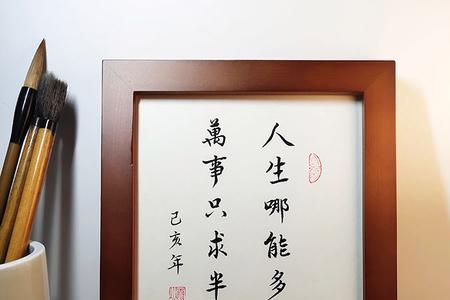 人生哪能多
萬事只求半
己亥年